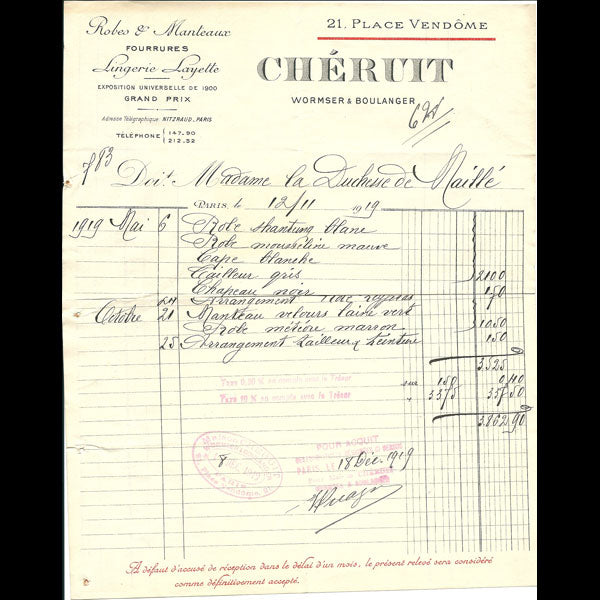 Robes & Manteaux
FOURRURES
Lingerie Layette
EXPOSITION UNIVERSELLE DE 1900
GRAND PRIX
Adresse Télégraphique NITZRAUD_PARIS
TÉLÉPHONE { 147.90
212.32
21, PLACE VENDÔME
CHÉRUIT
WORMSER & BOULANGER
Doit Madame la Duchesse de Maillé
PARIS, le 12/11 1919
1919 Mai 6 Robe shantung blanc
Robe mousseline mauve
Cape blanche
Tailleur gris 2100
Chapeau noir 150
24 Arrangement
Octobre 21 Manteau velours laine vert
Robe météore marron 1050
25 Arrangement tailleur teinture 150
3.525
Taxe 0,30 % au compte avec le Trésor sur 150 0,40
Taxe 10 % au compte avec le Trésor " 3375 337 50
3.862 90
POUR ACQUIT
PARIS, LE 18 Déc. 1919
8
A défaut d'accusé de réception dans le délai d'un mois, le présent relevé sera considéré
comme définitivement accepté.